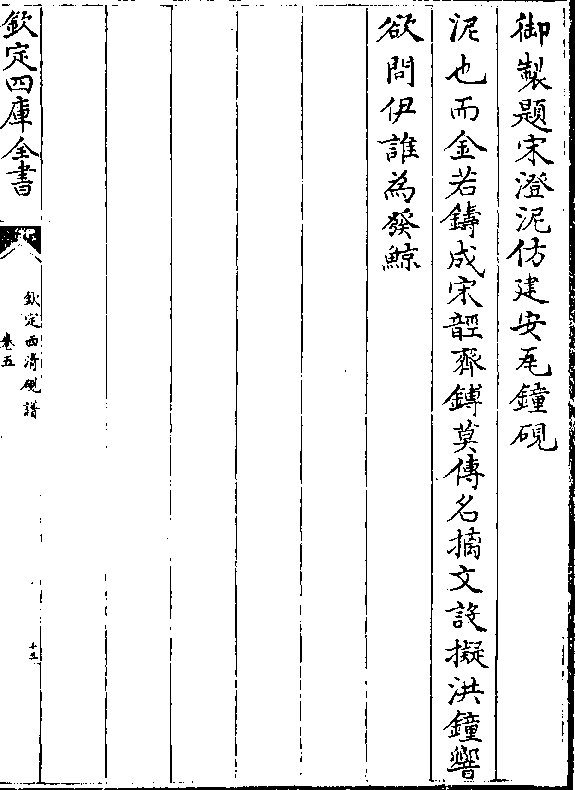 御製題宋澄泥仿建安瓦鐘硯
泥也而金若鑄成宋䪫齊鎛莫傳名摛文設擬洪鐘響
欲問伊誰為發鯨
欽定四庫全書
欽定西清硯譜
卷五